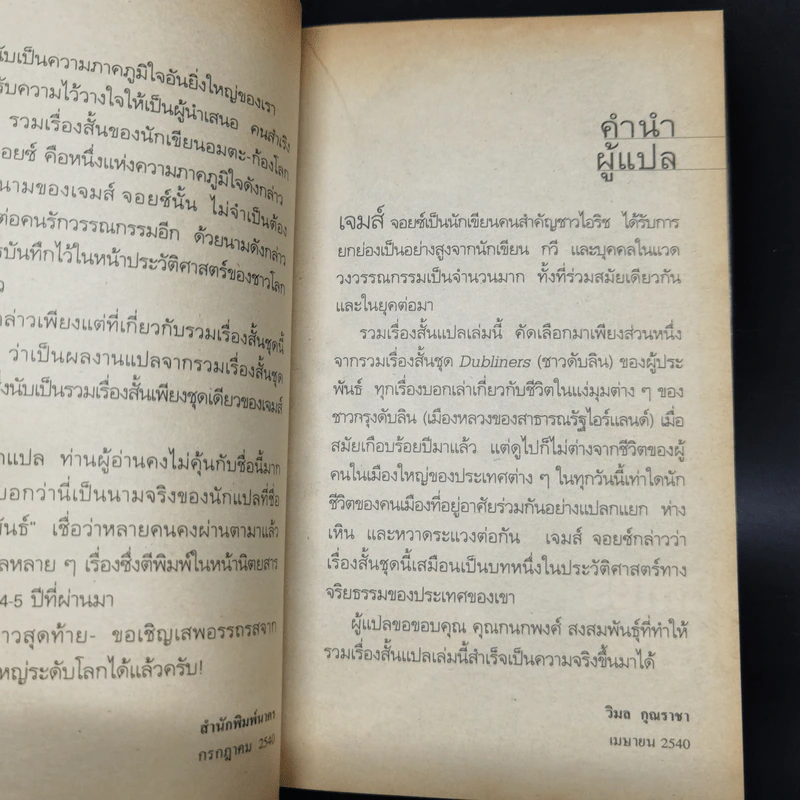 นับเป็นความภาคภูมิใจอันยิ่งใหญ่ของเรา
รับความไว้วางใจให้เป็นผู้นำเสนอ คนสำเริง
รวมเรื่องสั้นของนักเขียนอมตะ-ก้องโลก
จอยซ์ คือหนึ่งแห่งความภาคภูมิใจดังกล่าว
นามของเจมส์ จอยซ์นั้น ไม่จำเป็นต้อง
ต่อคนรักวรรณกรรมอีก ด้วยนามดังกล่าว
บันทึกไว้ในหน้าประวัติศาสตร์ของชาวโลก
ล่าวเพียงแต่ที่เกี่ยวกับรวมเรื่องสั้นชุดนี้
ว่าเป็นผลงานแปลจากรวมเรื่องสั้นชุด
ซึ่งนับเป็นรวมเรื่องสั้นเพียงชุดเดียวของเจมส์
แปล ท่านผู้อ่านคงไม่คุ้นกับชื่อนี้มาก
บอกว่านี่เป็นนามจริงของนักแปลที่ชื่อ
พันธ์" เชื่อว่าหลายคนคงผ่านตามาแล้ว
ลหลาย ๆ เรื่องซึ่งตีพิมพ์ในหน้านิตยสาร
4-5 ปีที่ผ่านมา
าวสุดท้าย- ขอเชิญเสพอรรถรสจาก
หญ่ระดับโลกได้แล้วครับ!
สำนักพิมพ์นาคร
กรกฎาคม 2540
คำนำ
ผู้แปล
เจมส์ จอยซ์เป็นนักเขียนคนสำคัญชาวไอริช ได้รับการ
ยกย่องเป็นอย่างสูงจากนักเขียน กวี และบุคคลในแวด
วงวรรณกรรมเป็นจำนวนมาก ทั้งที่ร่วมสมัยเดียวกัน
และในยุคต่อมา
รวมเรื่องสั้นแปลเล่มนี้ คัดเลือกมาเพียงส่วนหนึ่ง
จากรวมเรื่องสั้นชุด Dubliners (ชาวดับลิน) ของผู้ประ
พันธ์ ทุกเรื่องบอกเล่าเกี่ยวกับชีวิตในแง่มุมต่าง ๆ ของ
ชาวกรุงดับลิน (เมืองหลวงของสาธารณรัฐไอร์แลนด์) เมื่อ
สมัยเกือบร้อยปีมาแล้ว แต่ดูไปก็ไม่ต่างจากชีวิตของผู้
คนในเมืองใหญ่ของประเทศต่าง ๆ ในทุกวันนี้เท่าใดนัก
ชีวิตของคนเมืองที่อยู่อาศัยร่วมกันอย่างแปลกแยก ห่าง
เหิน และหวาดระแวงต่อกัน เจมส์ จอยซ์กล่าวว่า
เรื่องสั้นชุดนี้เสมือนเป็นบทหนึ่งในประวัติศาสตร์ทาง
จริยธรรมของประเทศของเขา
ผู้แปลขอขอบคุณ คุณกนกพงศ์ สงสมพันธุ์ที่ทำให้
รวมเรื่องสั้นแปลเล่มนี้สำเร็จเป็นความจริงขึ้นมาได้
วิมล กุณราชา
เมษายน 2540